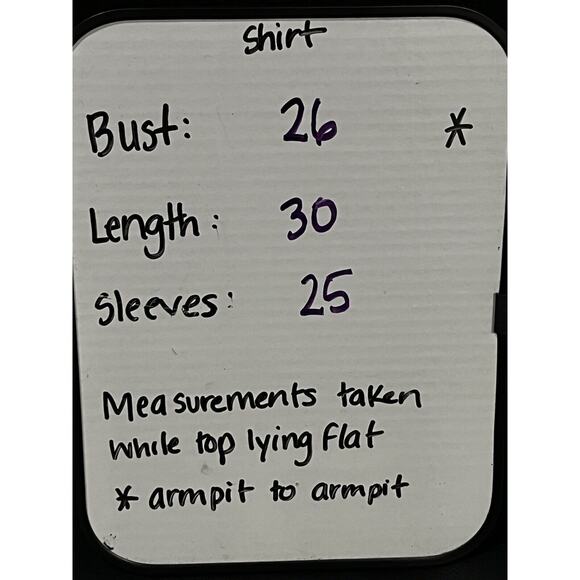 Shirt
Bust: 26 *
Length: 30
Sleeves: 25
Measurements taken
while top lying flat
* armpit to armpit